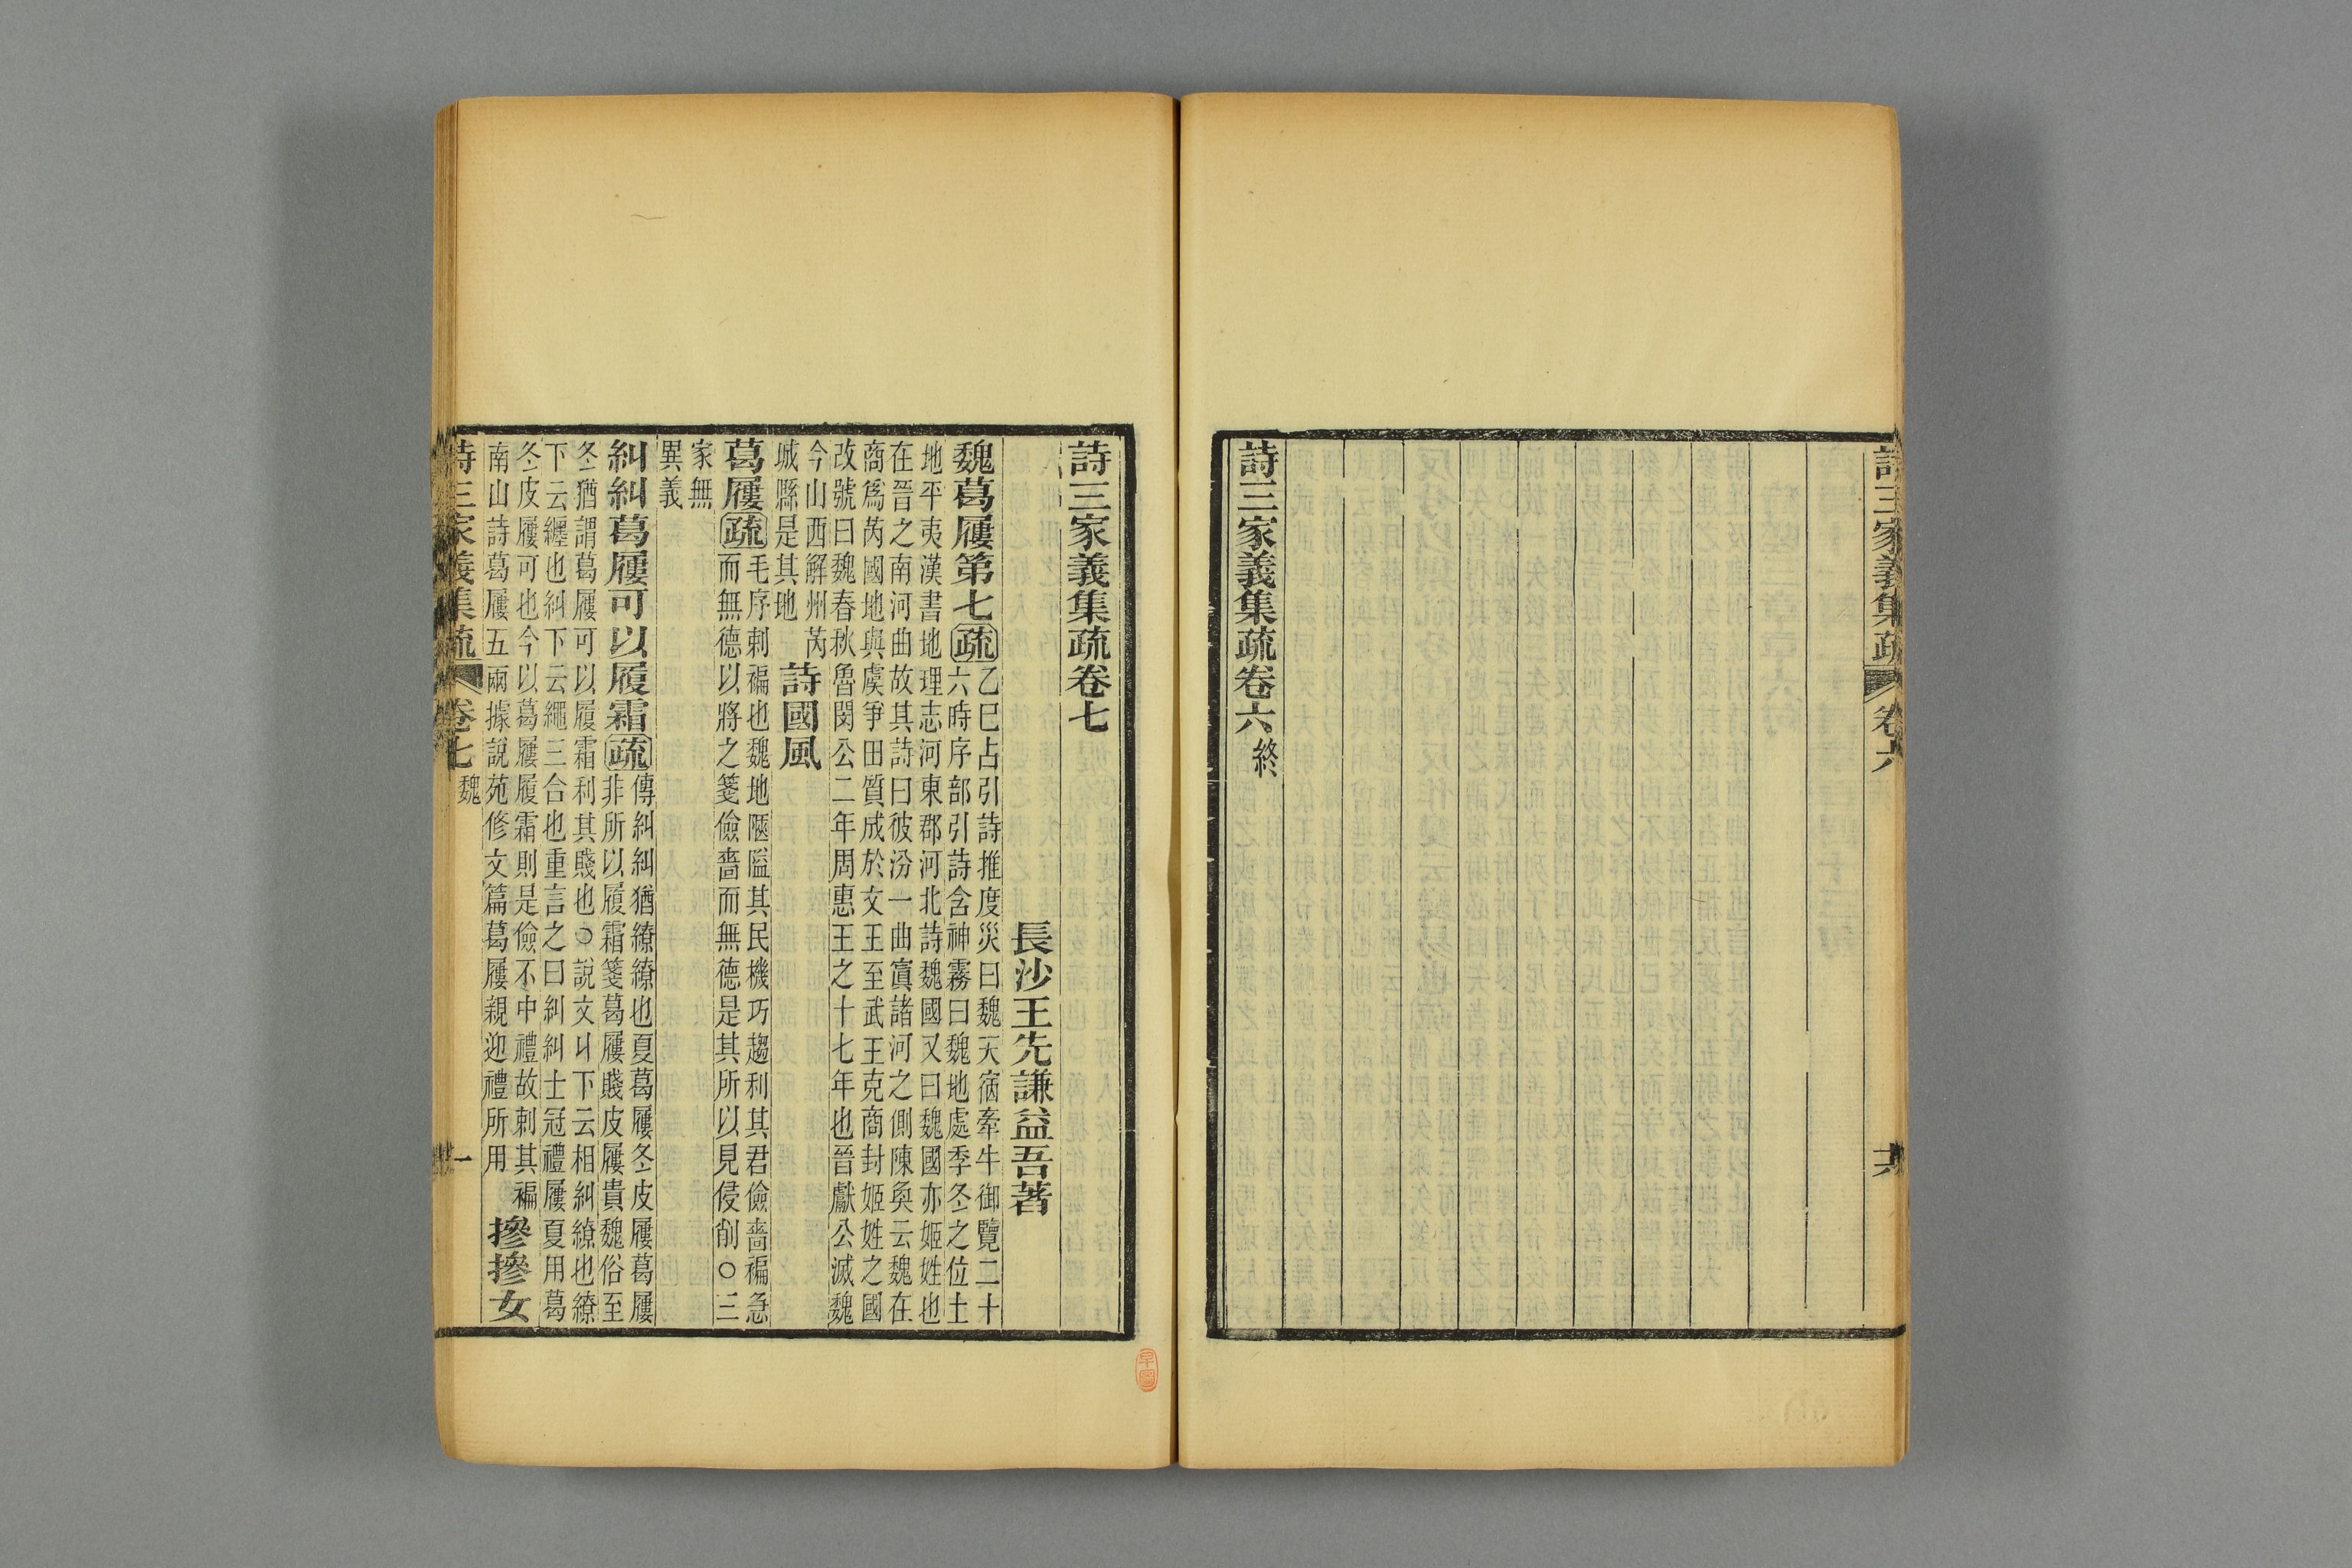 詩三家義集疏
卷六
詩三家義集疏卷六 終
詩三家義集疏卷七
長沙王先謙益吾著
魏葛屨第七疏
乙巳占引詩推度災曰魏天宿牽牛御覽二十
六時序部引詩含神霧曰魏地處季冬之位土
地平夷漢書地理志河東郡河北詩魏國又曰魏國亦姬姓也
在晉之南河曲故其詩曰彼汾一曲寘諸河之側陳奐云魏在
商爲芮國地與虞爭田質成於文王至武王克商封姬姓之國
改號曰魏春秋魯閔公二年周惠王之十七年也晉獻公滅魏
今山西解州芮
城縣是其地
詩國風
葛屨疏
毛序刺褊也魏地陿隘其民機巧趨利其君儉嗇褊急
而無德以將之箋儉嗇而無德是其所以見侵削○三
家無
異義
糾糾葛屨可以履霜疏
傳糾糾猶繚繚也夏葛屨冬皮屨葛屨
非所以履霜箋葛屨賤皮屨貴魏俗至
冬猶謂葛屨可以履霜利其賤也○說文丩下云相糾繚也繚
下云纏也糾下云繩三合也重言之曰糾糾士冠禮屨夏用葛
冬皮屨可也今以葛屨履霜則是儉不中禮故刺其褊
南山詩葛屨五兩據說苑修文篇葛屨親迎禮所用
摻摻女
詩三家義集疏
卷七
魏
一